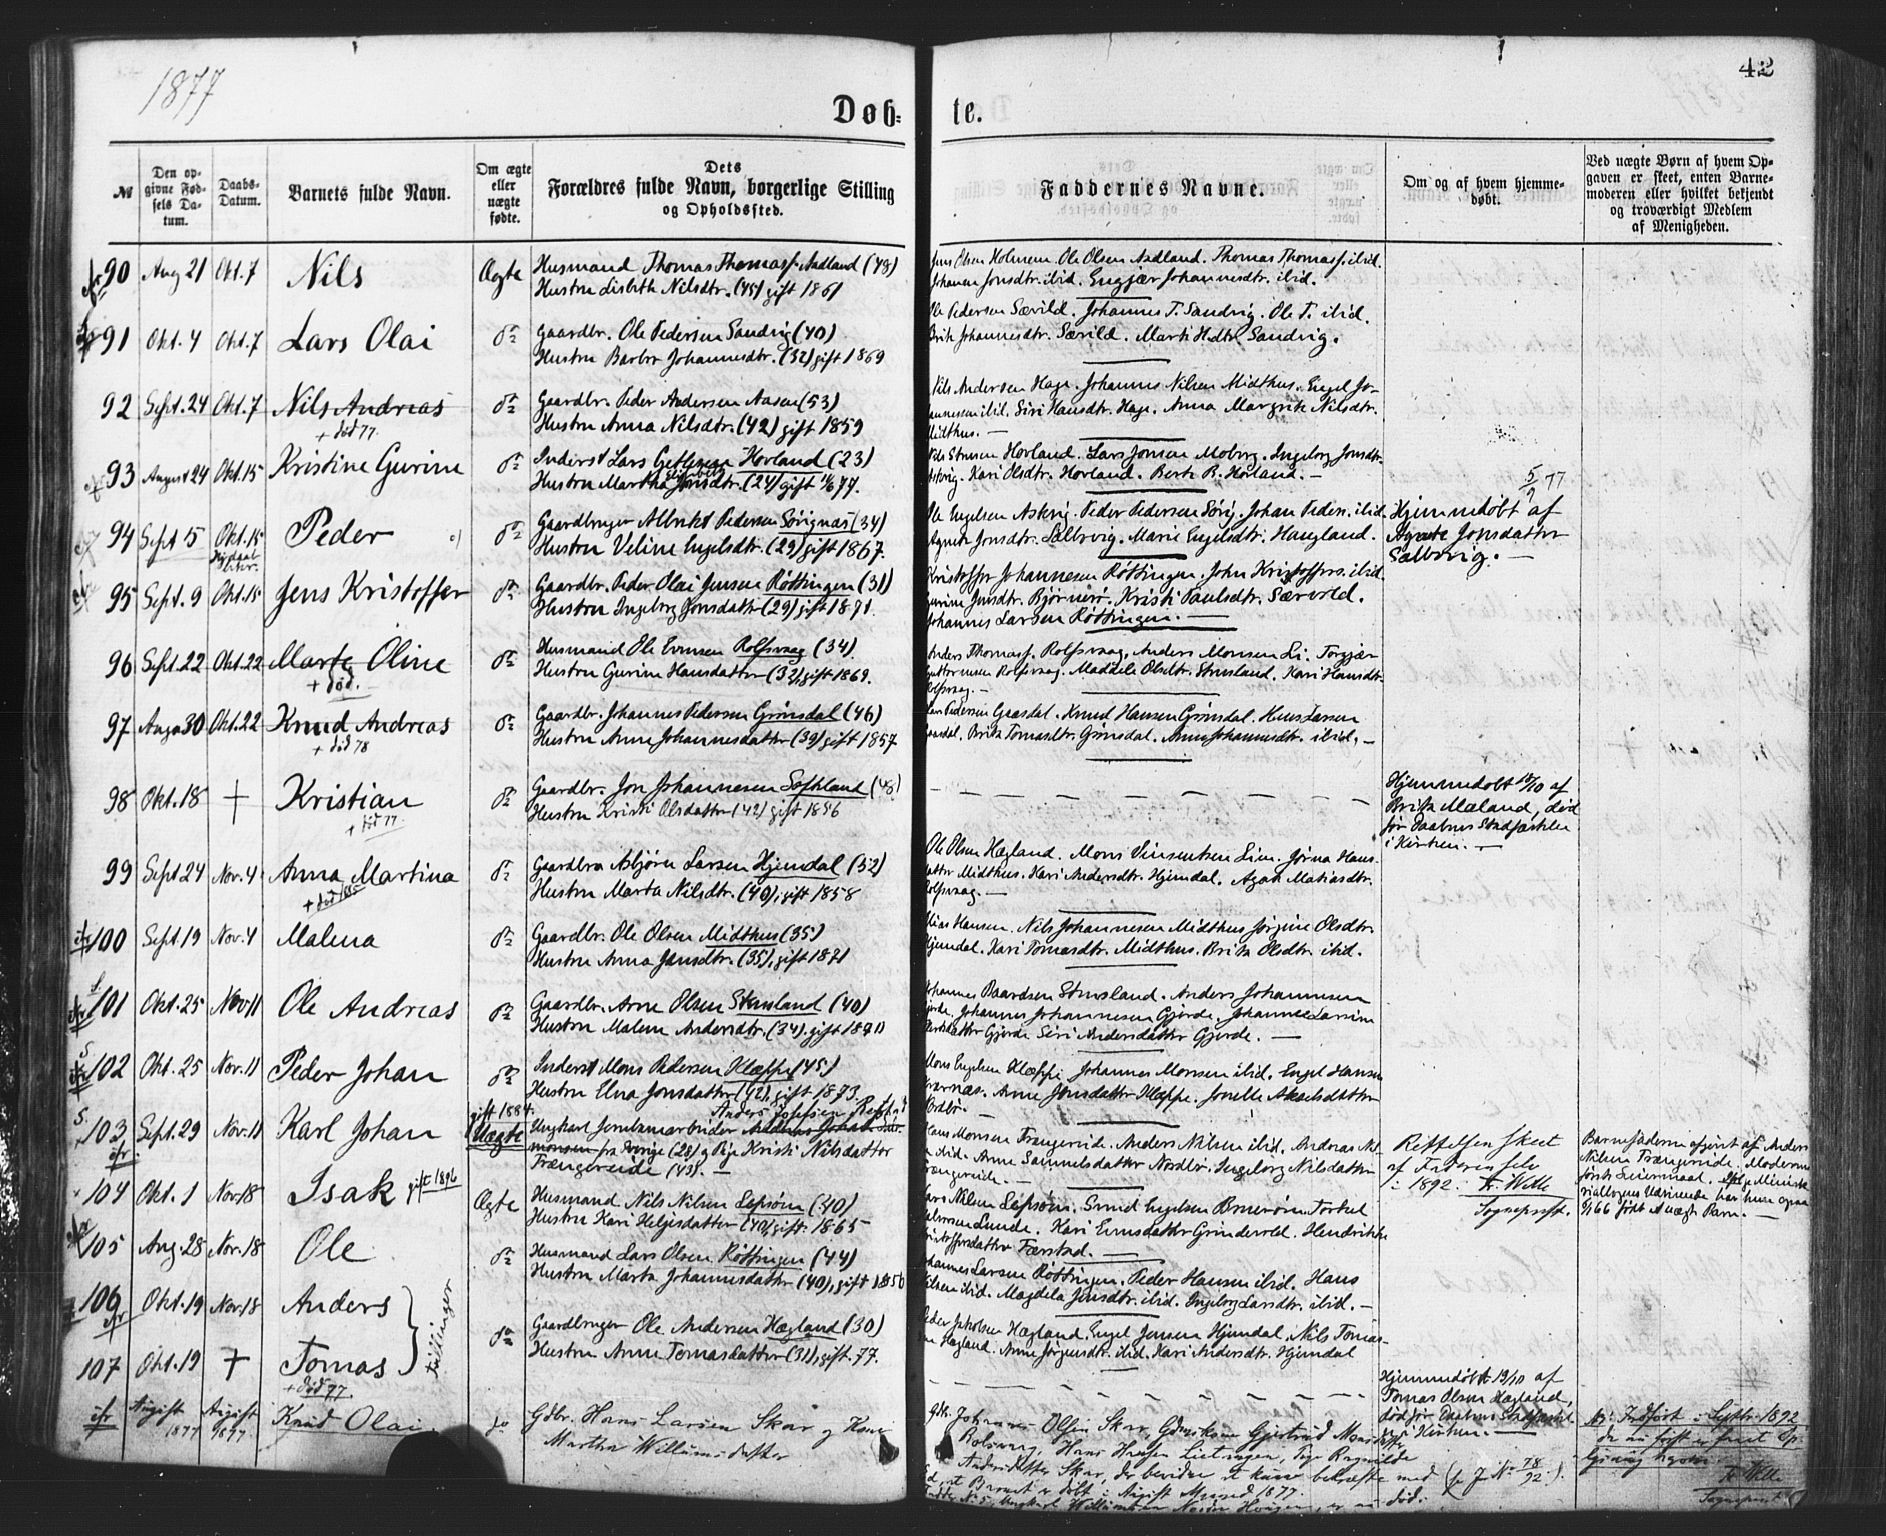 1877
42
Døb=
te.
№
Den op-
givne Fød-
sels Da-
tum.
Daabs-
Datum.
Barnets fulde Navn.
Om ægte
eller
uægte
fødte.
Dets
Forældres fulde Navn, borgerlige Stilling
og Opholdssted.
Faddernes Navne.
Om og af hvem hjemme-
døbt.
Ved uægte Børn af hvem Op-
gaven er skeet, enten Barne-
moderen eller hvilket bekjendt
og troværdigt Medlem
af Menigheden.
90 Aug 21 Okt. 7 Nils Ægte Husmand Thomas Thomass. Aadland (48)
Hustru Lisbeth Nilsdtr. (45) gift 1861
Jens Olsen Holmen. Ole Olsen Aadland. Thomas Thomass. ibid.
Johanna Jonsdtr. ibid. Engjær Johannesdtr. ibid.
91 Okt. 4 Okt. 7 Lars Olai do Gaardbr. Ole Pedersen Sandvig (40)
Hustru Barbro Johannesdtr. (32) gift 1869
Ole Pedersen Særild. Johannes T. Sandvig. Ole T. ibid.
Brite Johannesdtr. Særild. Marti Sandvig.
92 Sept. 24 Okt. 7 Nils Andreas do Gaardbr. Peder Andersen Aasen (53)
+ død 77.
Hustru Anna Nilsdtr. (42) gift 1859
Nils Andersen Hage. Johannes Nilsen Midthus. Engel Jo-
hannesen ibid. Siri Hansdtr. Hage. Anna Margrete Nilsdtr.
Midthus.
93 August 24 Okt. 15 Kristine Gurine do Inderst Lars Hovland (23)
Hustru Martha Jonsdtr. (24) gift 77.
Hovland. Lars Jonsen Moberg. Ingeborg Jonsdtr.
Askvig. Kari Olsdtr. Hovland. Berte B. Hovland.
94 Sept 5 Okt. 15 Peder do Gaardbruger Albrikt Pedersen Sørignæs (34)
Hustru Veline Engelsdtr. (29) gift 1867.
Ole Engelsen Askvig. Peder Pedersen Sørig. Johan Peders. ibid.
Agnete Jonsdtr. Salbovig. Marie Engelsdtr. Haugland.
5/9 77
Hjemmedøbt af
Agnete Jonsdatter
Salbovig.
95 Sept. 9 Okt. 15 Jens Kristoffer do Gaardbr. Peder Olai Jensen Røttingen (31)
Hustru Ingeborg Jonsdatter (29) gift 1871.
Kristoffer Johannesen Røttingen. John Kristoffers. ibid.
Gurine Jensdtr. Bjørnerø. Kristi Paulsdtr. Særvold.
Johannes Larsen Røttingen.
96 Sept. 22 Okt. 22 Marte Oline do Husmand Ole Evensen Rolfsvaag (34)
+ død.
Hustru Gurine Hansdatter (32), gift 1869.
Anders Thomass. Rolfsvaag. Anders Monsen Li. Torgjær
Guttormsen Rolfsvaag. Maddele Olsdtr. Strusland. Kari Hansdtr.
Rolfsvaag.
97 Aug 30 Okt. 22 Knud Andreas do Gaardbr. Johannes Pedersen Grinsdal (46)
+ død 78
Hustru Anne Johannesdatter (39) gift 1857
Lars Pedersen Graasdal. Knud Hansen Grinsdal. Hans Larsen
Brita Tomasdtr. Grinsdal. Anne Johannesdtr. ibid.
98 Okt. 18 + Kristian do Gaardbr. Jon Johannesen Søfteland (48)
+ død 77.
Hustru Kristi Olsdatter (42) gift 1856
Hjemmedøbt 18/10 af
Brita Mæland, død
før Daabens Stadfæstelse
i Kirken.
99 Sept 24 Nov. 4 Anna Martina do Gaardbr. Asbjørn Larsen Hjemdal (52)
+ død 1885
Hustru Marta Nilsdtr. (40), gift 1858
Ole Olsen Hægland. Mons Vinsentsen Lien. Jørna Hans-
datter Midthus. Kari Andersdtr. Hjemdal. Agate Matiasdtr.
Rolfsvaag
100 Sept. 19 Nov. 4 Malena do Gaardbr. Ole Olsen Midthus (35)
Hustru Anna Jansdtr. (35), gift 1871
Elias Hansen. Nils Johannesen Midthus Jørgine Olsdtr.
Hjemdal. Kari Tomasdtr. Midthus. Brita Olsdtr. ibid.
101 Okt. 25 Nov 11 Ole Andreas do Gaardbr. Arne Olsen Strusland (40)
Hustru Malene Andersdtr. (34), gift 1871
Johannes Baardsen Strusland. Anders Johannesen
Gjerde. Johannes Johannesen Gjerde. Johannes Larsen
Gjerde Siri Andersdatter Gjerde.
102 Okt. 25 Nov. 11 Peder Johan do Inderst Mons Pedersen Klæppe (45)
Hustru Elna Jonsdatter (42), gift 1873.
Mons Engelsen Klæppe Johannes Monsen ibid. Engel Hansen
Anne Jonsdatter Klæppe. Jonelle Akselsdatter
Nordbø.
103 Sept. 29 Nov. 11 Karl Johan Uægte
gift 1884. Anders Josefsen
Ungkarl Jernbanearbeider
fra Sverige (28) og Pige Kristi Nilsdatter
Trængereide (43).
Hans Monsen Trængereide. Anders Nilsen ibid. Andreas Nil-
sen ibid. Anne Samuelsdatter Nordbø. Ingeborg Nilsdatter
Trængereide.
Rettelsen skeet
af Faderen selv
i 1892. Fr. Wille
Sogneprest.
Barnefaderen opgivet af Anders
Nilsen Trængereide. Moderens
første Leiermaal.
født uægte Barn.
104 Okt. 1 Nov. 18 Isak gift 1896 Ægte Husmand Nils Nilsen Lepsøen (40)
Hustru Kari Helgesdatter (40), gift 1865
Lars Nilsen Lepsøen. Smed Engelsen Torkel
Lunde. Kari Evensdatter Grindevold. Hendrikke
Kristoffersdatter Færstad.
105 Aug. 28 Nov. 18 Ole do Husmand Lars Olsen Røttingen (44)
Hustru Marta Johannesdatter (40), gift 1856
Johannes Larsen Røttingen. Peder Hansen ibid. Hans
Nilsen ibid. Magdela Jensdtr. ibid. Ingeborg Larsdtr. ibid.
106 Okt. 19 Nov. 18 Anders Tvillinger
do Gaardbruger Ole Andersen Hægland (30)
Hustru Anne Tomasdatter (31), gift. 77.
Peder Jakobsen Hægland. Engel Jensen Hjemdal. Nils Tomas-
sen Hægland. Anne Jørgensdtr. ibid. Kari Andersdtr. Hjemdal
107 Okt. 19 + Tomas
+ død 77.
Hjemmedøbt 19/10 af
Tomas Olsen Hægland,
død før Daabens Stadfæstelse
i Kirken.
August 1877 August 1877 Knud Olai Gdbr. Hans Larsen Skår og Kone
Martha Willumsdatter
Gdbr. Johannes Olsen Skår, Gdmskone Gjertrud Monsdtr.
Bolsvaag, Hans Hansen Pige Ragnilde
Andersdatter Skår, der bevidne at kunne bekræfte med (se J. № 78/92).
at Barnet er døbt i August Maaned 1877.
Ungkarl Willumsen er nu død.
NB. Indført i Septbr. 1892
da nu først er faaet Op-
lysning herom.
Fr. Wille
Sogneprest